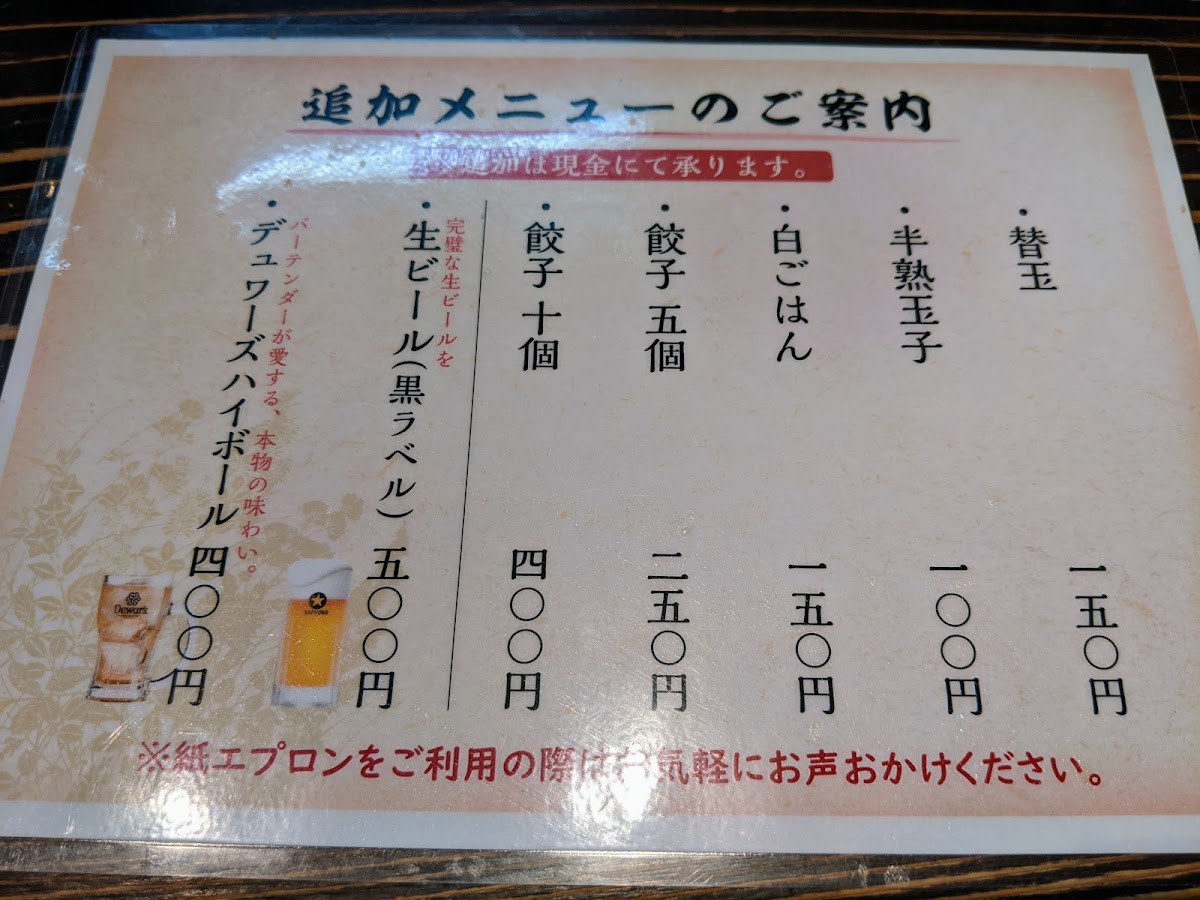 追加メニューのご案内
※追加は現金にて承ります。
・替玉 一五〇円
・半熟玉子 一〇〇円
・白ごはん 一五〇円
・餃子 五個 二五〇円
・餃子 十個 四〇〇円
完璧な生ビールを
・生ビール(黒ラベル) 五〇〇円
バーテンダーが愛する、本物の味わい。
・デュワーズハイボール 四〇〇円
SAPPORO
Dewar's
※紙エプロンをご利用の際はお気軽にお声おかけください。